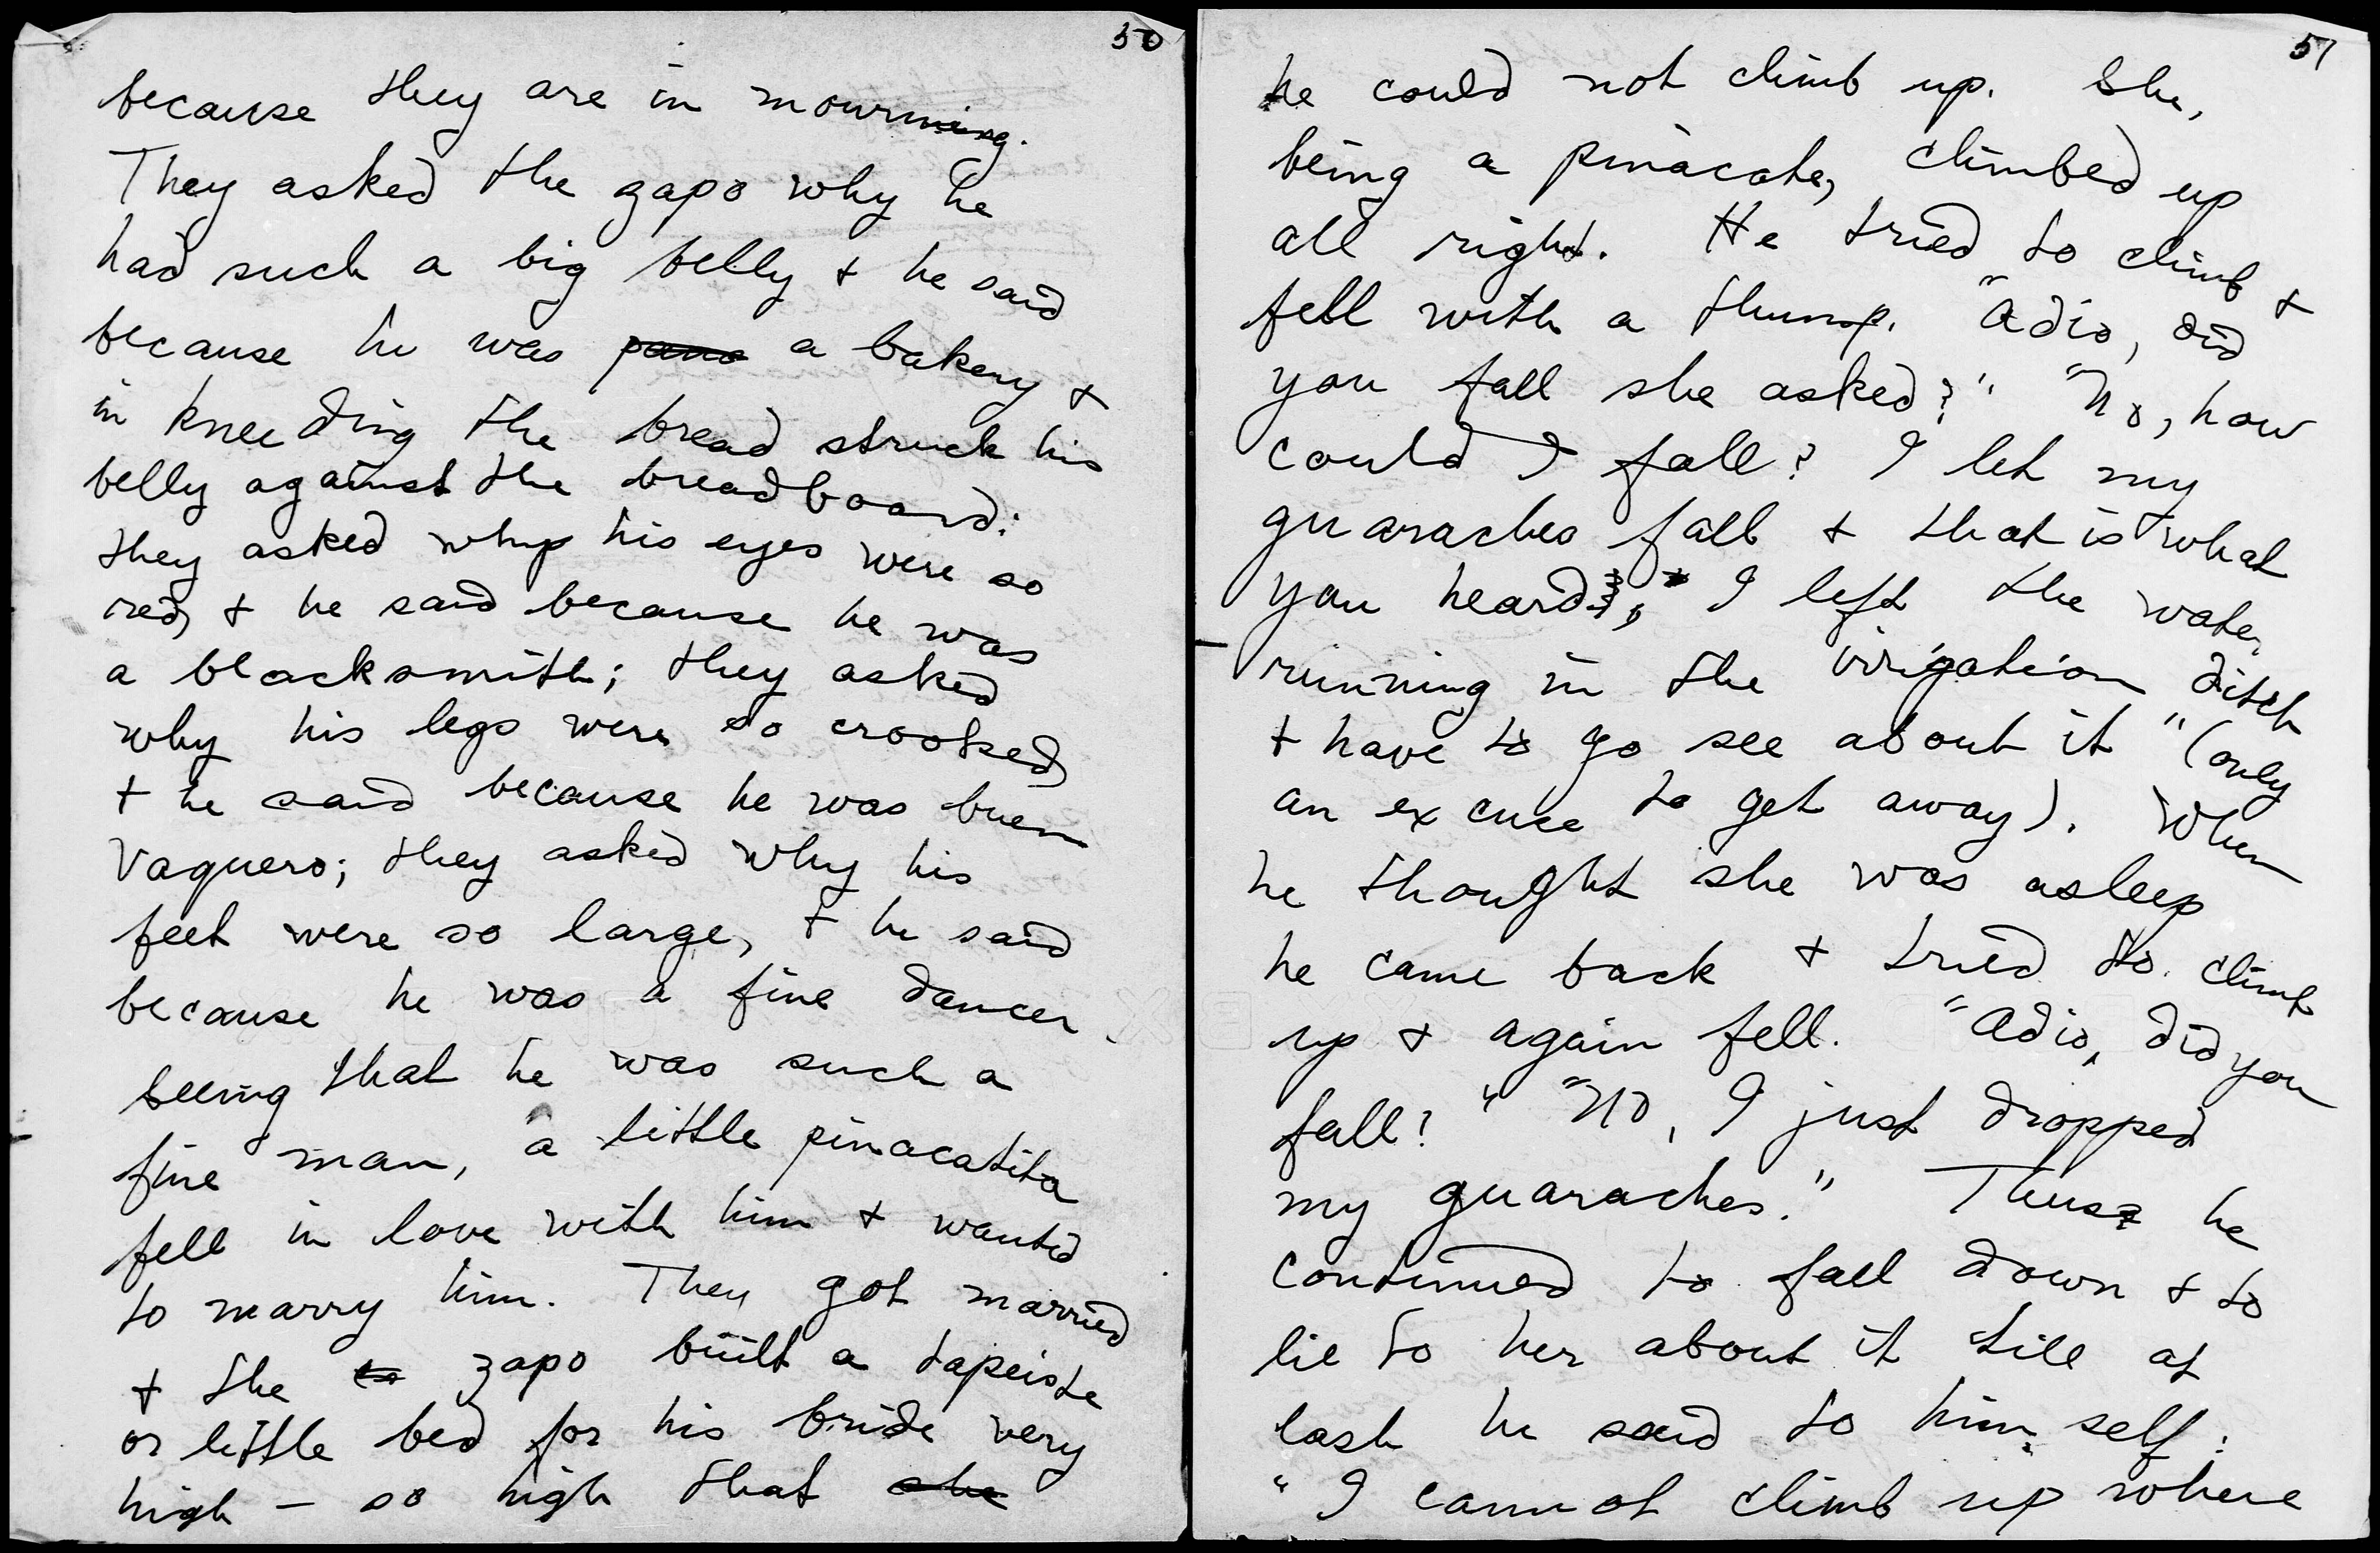 50
because they are in mourning.
They asked the zapo why he
had such a big belly + he said
because he was a bakery +
in kneeding the bread struck his
belly against the breadboard:
they asked why his eyes were so
red, + he said because he was
a blacksmith; they asked
why his legs were so crooked
+ he said because he was buen
vaquero; they asked why his
feet were so large, + he said
because he was a fine dancer.
Seeing that he was such a
fine man, a little pinacatita
fell in love with him + wanted
to marry him. They got married
+ the zapo built a tapeiste
or little bed for his bride very
high — so high that she
51
he could not climb up. She,
being a pinacate, climbed up
all right. He tried to climb +
fell with a thump. "Adio, did
you fall she asked?" "No, how
could I fall? I let my
guaraches fall + that is what
you heard; I left the water
running in the irrigation ditch
+ have to go see about it" (only
an excuse to get away). When
he thought she was asleep
he came back + tried to climb
up + again fell. "Adio, did you
fall?" "No, I just dropped
my guaraches." Thus he
continued to fall down + to
lie to her about it till at
last he said to himself:
"I cannot climb up where